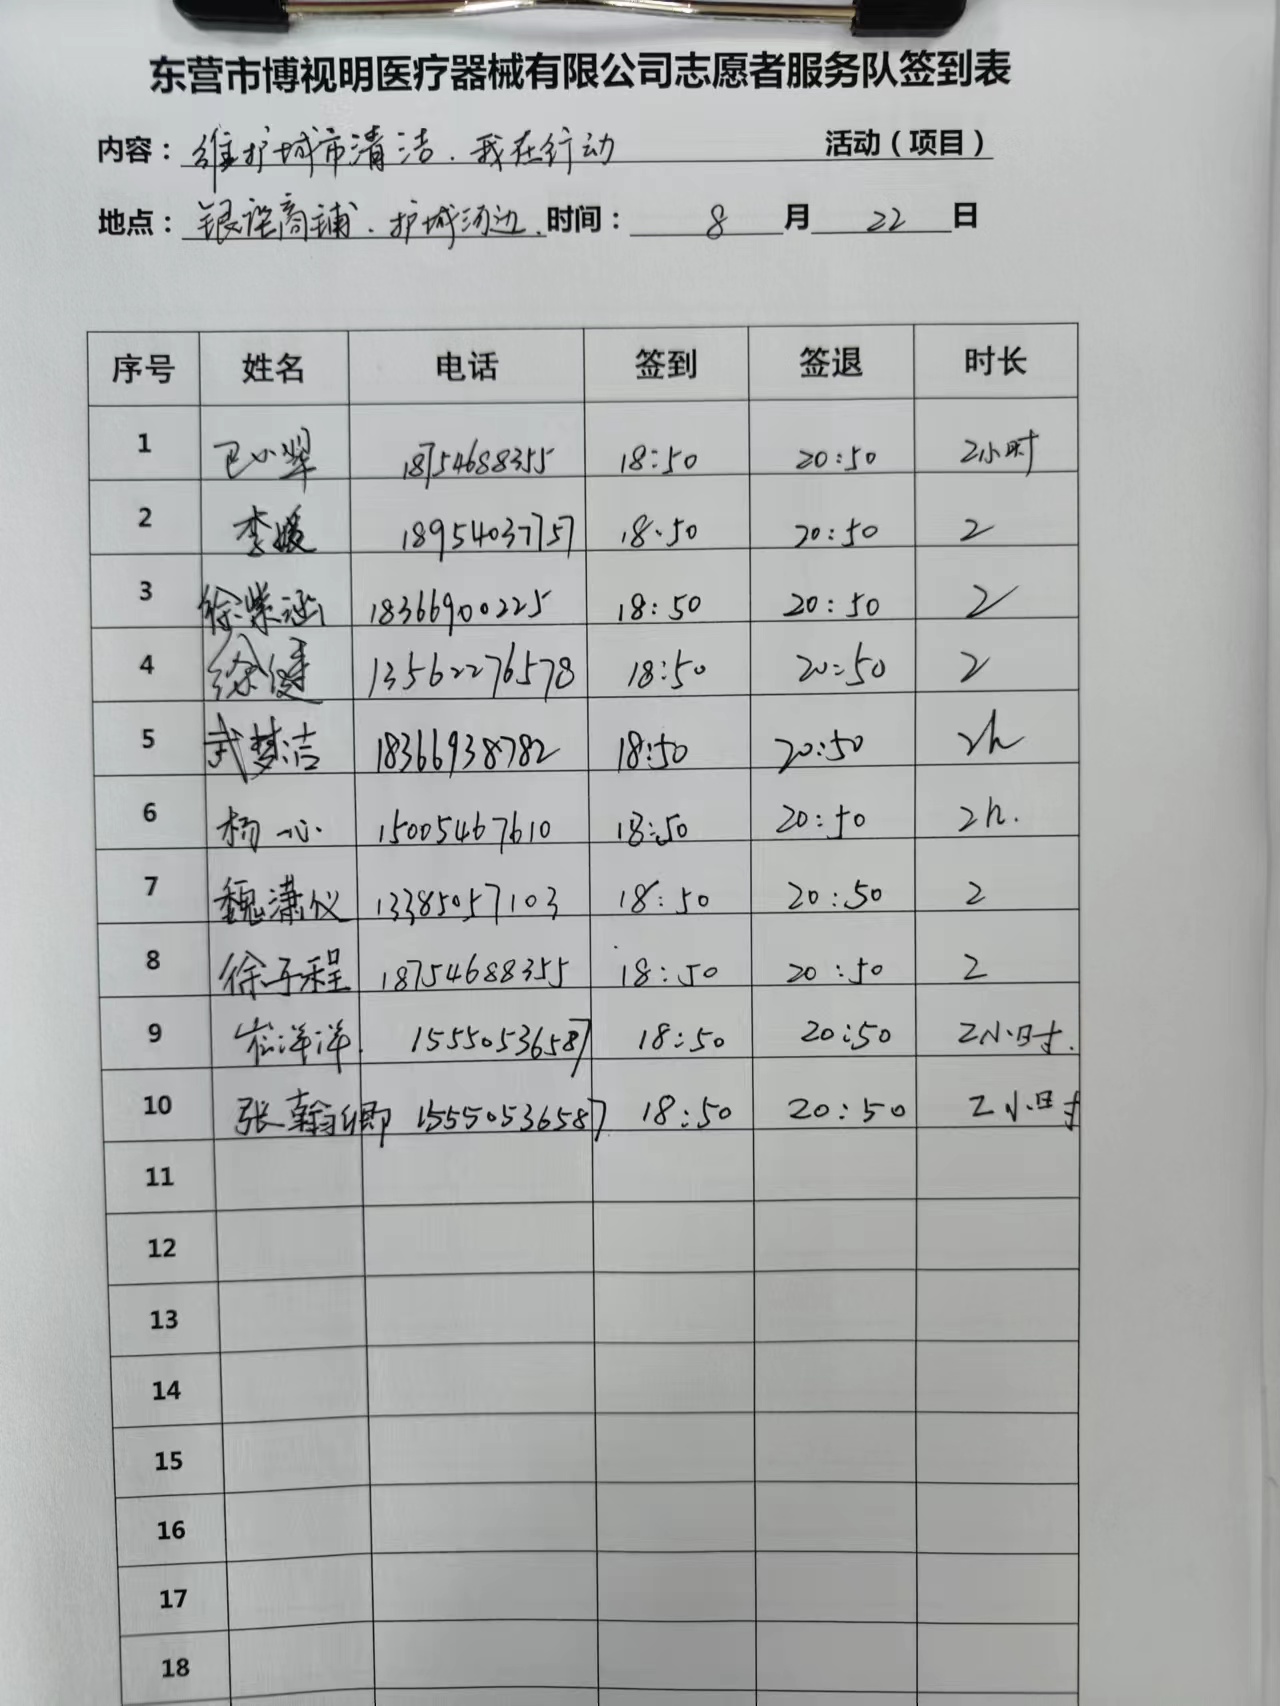 东营市博视明医疗器械有限公司志愿者服务队签到表
内容：维护城市清洁.我在行动 活动（项目）
地点：银座商铺.护城河边. 时间：8月22日
序号 姓名 电话 签到 签退 时长
1 小翠 18754688355 18:50 20:50 2小时
2 李媛 18954037757 18:50 20:50 2
3 徐紫涵 18366900225 18:50 20:50 2
4 徐健 13562276578 18:50 20:50 2
5 武梦洁 18366938782 18:50 20:50 2h
6 杨心 15005467610 18:50 20:50 2h.
7 魏潇仪 13385057103 18:50 20:50 2
8 徐子程 18754688355 18:50 20:50 2
9 崔洋洋. 15550536587 18:50 20:50 2小时.
10 张翰卿 15550536587 18:50 20:50 2小时
11
12
13
14
15
16
17
18